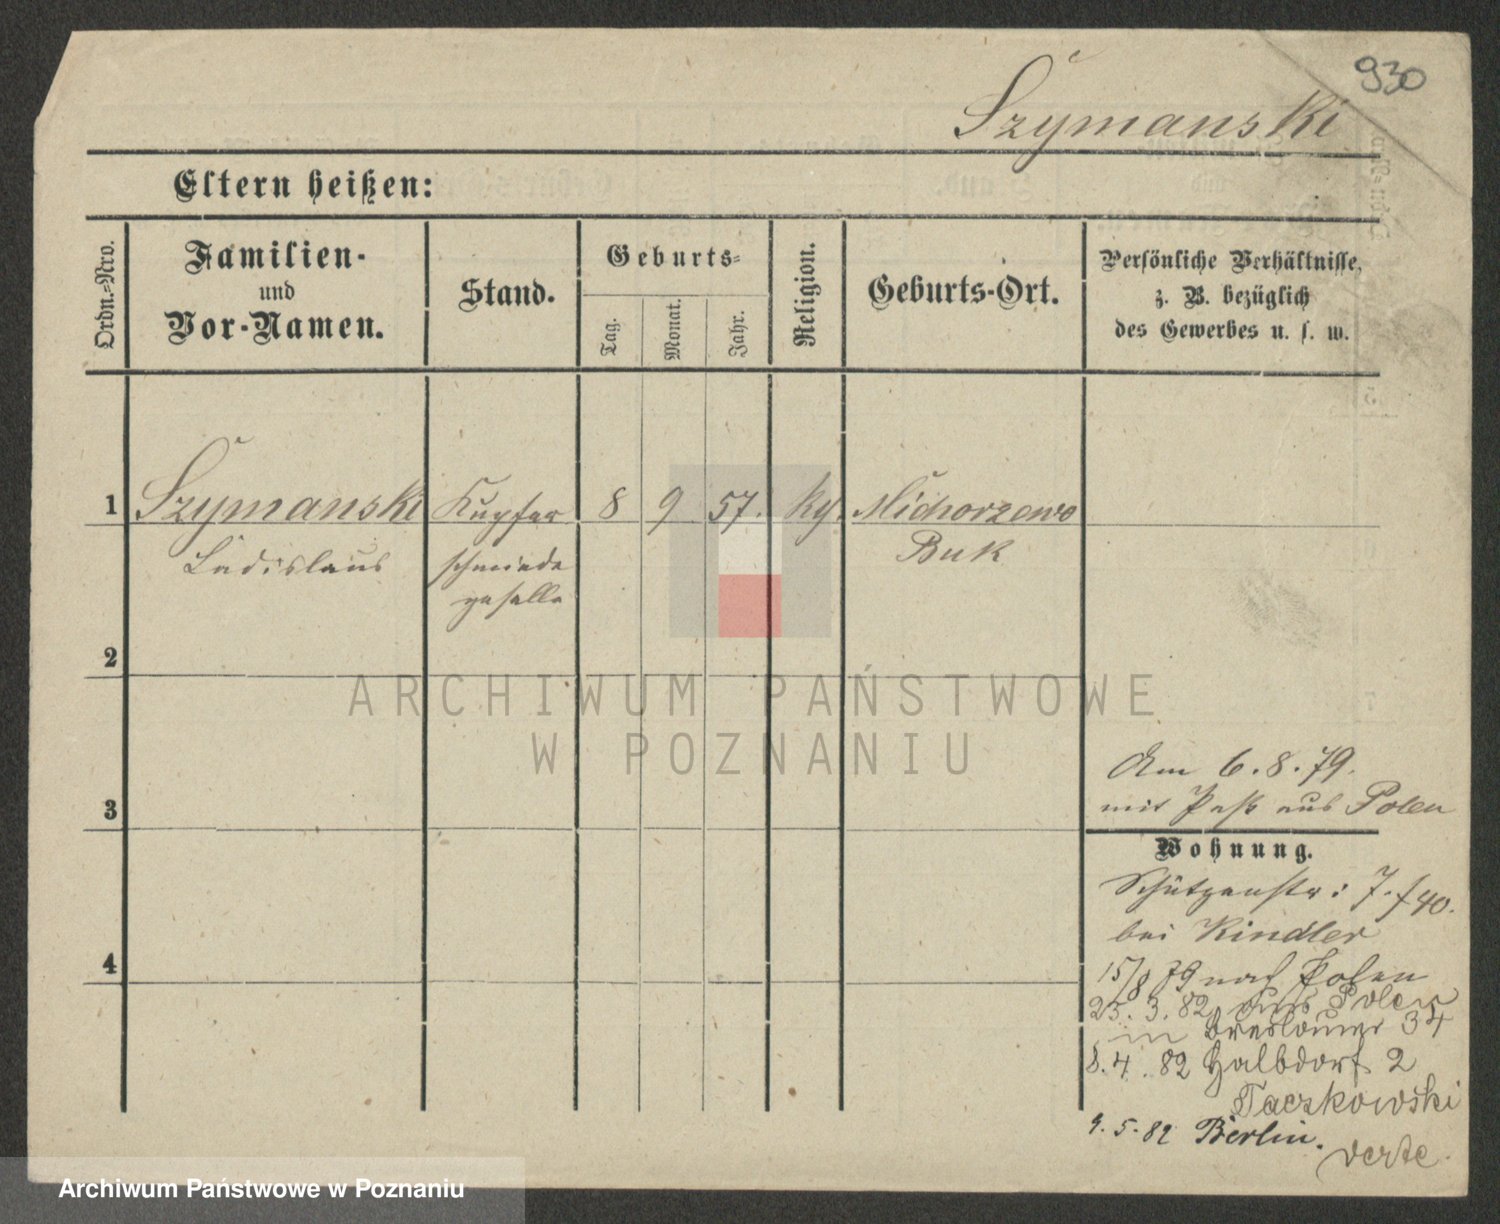 930
Szymanski
Eltern heißen:
Ordn.-Nro.
Familien-
und
Vor-Namen.
Stand.
Geburts-
Tag.
Monat.
Jahr.
Religion.
Geburts-Ort.
Persönliche Verhältnisse,
z. B. bezüglich
des Gewerbes u. s. w.
1 Szymanski Kupfer 8 9 57. Michorzewo
Ladislaus schmiede Buk
geselle
2
3
4
Am 6.8.79.
mit Paß aus Polen
Wohnung.
Schützenstr: 7. f 40.
bei Kindler
15/8 79 nach Polen
25.3.82 aus Polen
in Breslauer 34
8.4.82 Halbdorf 2
Taczkowski
9.5.82 Berlin.
verte.
ARCHIWUM PAŃSTWOWE
W POZNANIU
Archiwum Państwowe w Poznaniu